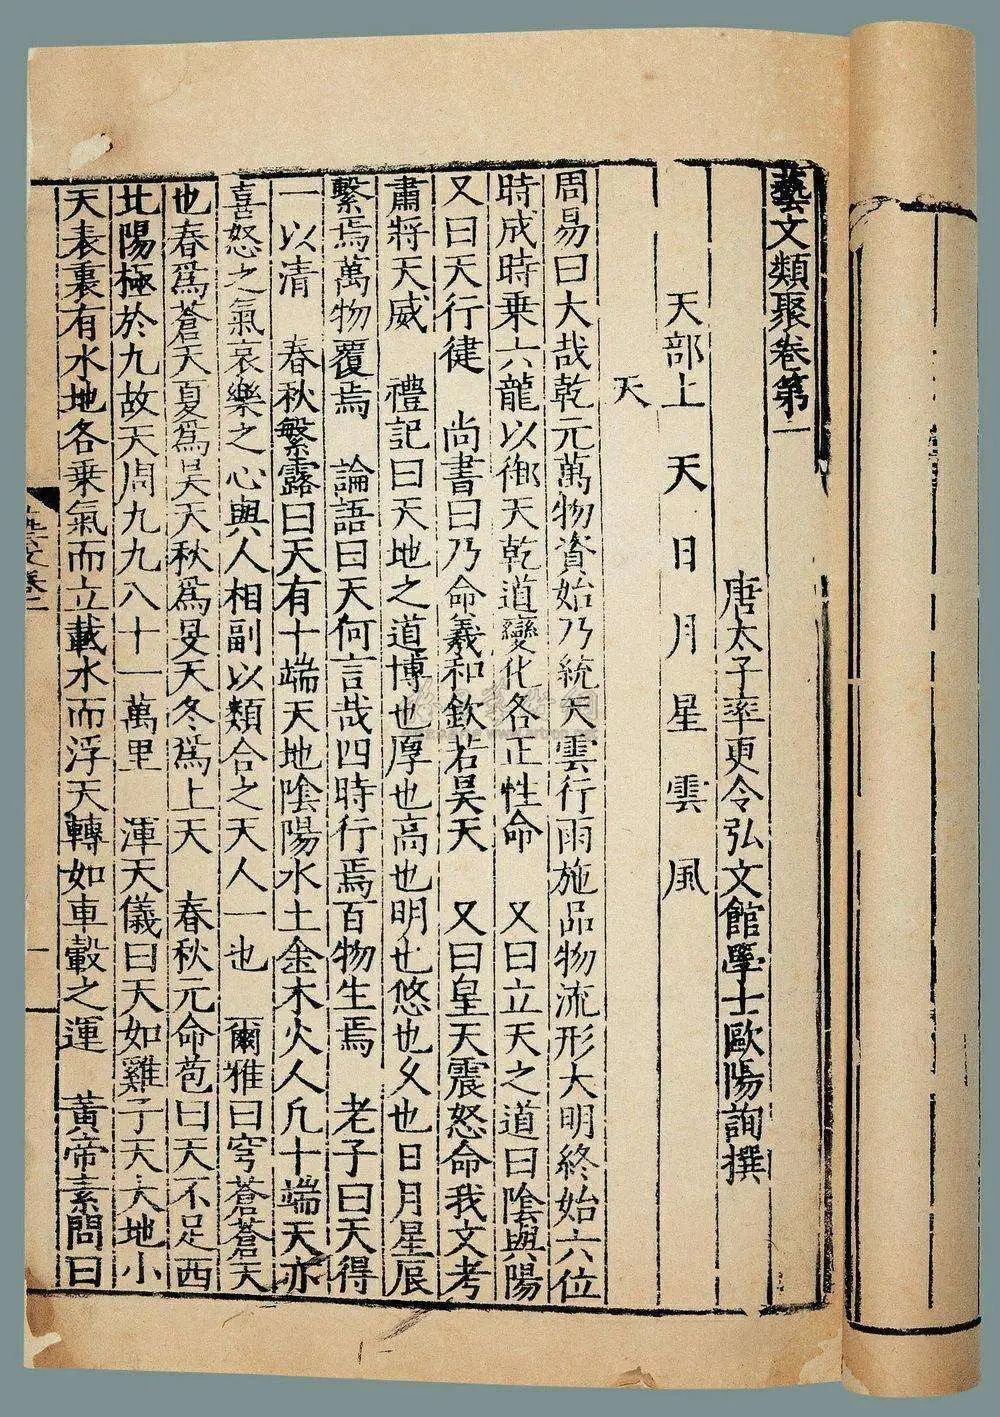 藝文類聚卷第一
唐太子率更令弘文館學士歐陽詢撰
天部上 天 日 月 星 雲 風
天
周易曰大哉乾元萬物資始乃統天雲行雨施品物流形大明終始六位
時成時乗六龍以御天乾道變化各正性命 又曰立天之道曰陰與陽
又曰天行健 尚書曰乃命羲和欽若昊天 又曰皇天震怒命我文考
肅將天威 禮記曰天地之道博也厚也髙也明也悠也久也日月星辰
繫焉萬物覆焉 論語曰天何言哉四時行焉百物生焉 老子曰天得
一以清 春秋繁露曰天有十端天地陰陽水土金木火人凡十端天亦
喜怒之氣哀樂之心與人相副以類合之天人一也 爾雅曰穹蒼蒼天
也春爲蒼天夏爲昊天秋爲旻天冬爲上天 春秋元命苞曰天不足西
北陽極於九故天周九九八十一萬里 渾天儀曰天如雞子天大地小
天表裏有水地各乗氣而立載水而浮天轉如車轂之運 黃帝素問曰